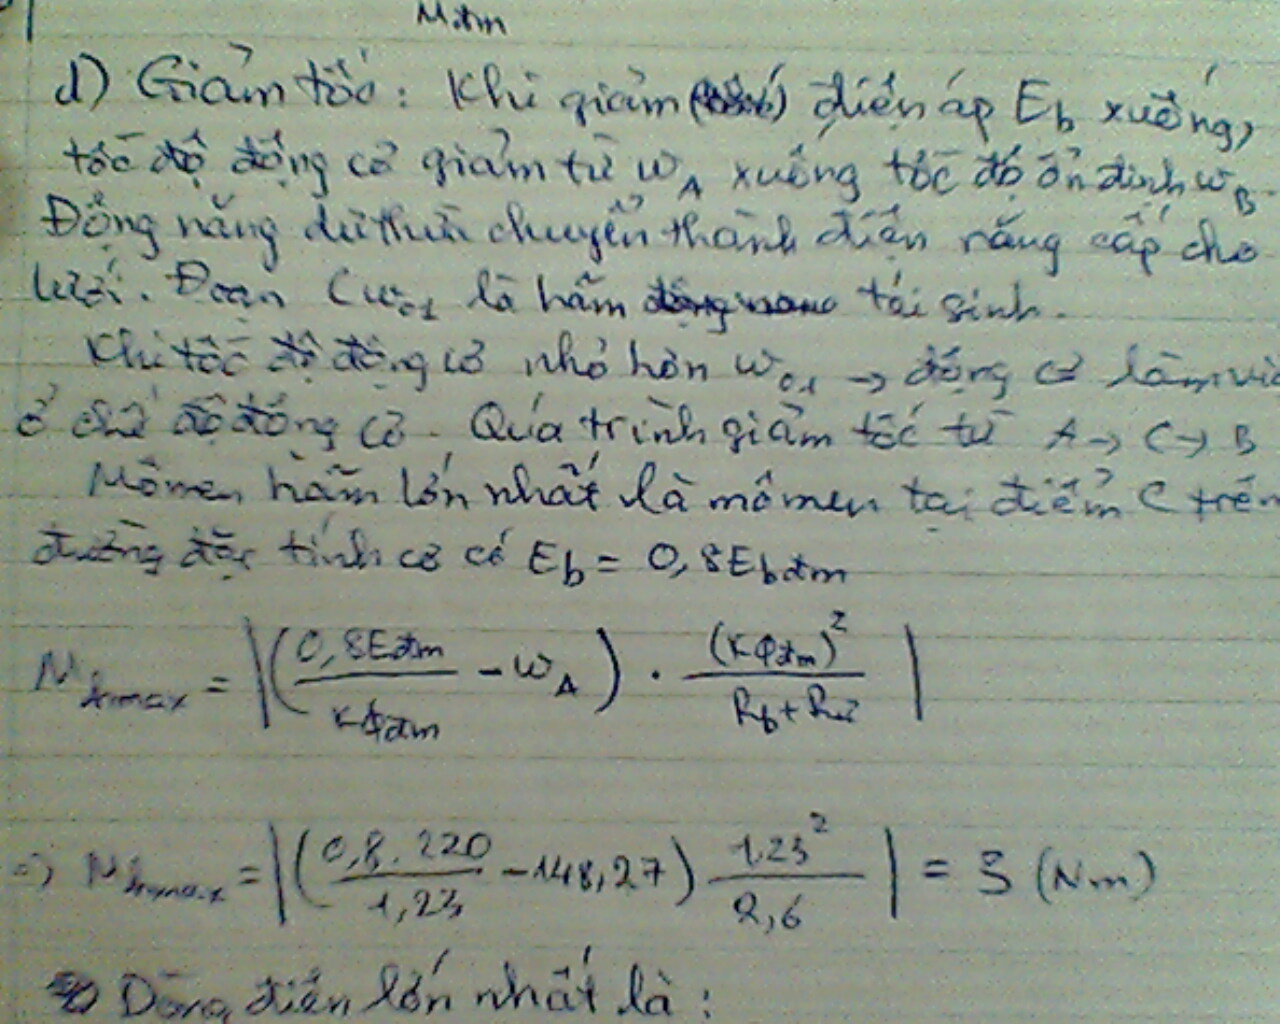 Mđm
d) Giảm tốc: Khi giảm điện áp Eb xuống,
tốc độ động cơ giảm từ ωA xuống tốc độ ổn định ωB.
Động năng dư thừa chuyển thành điện năng cấp cho
lưới. Đoạn Cω01 là hãm tái sinh.
Khi tốc độ động cơ nhỏ hơn ω01 → động cơ làm việ
ở chế độ động cơ. Quá trình giảm tốc từ A → C → B
Mômen hãm lớn nhất là mômen tại điểm C trên
đường đặc tính cơ có Eb = 0,8Ebđm
Mhmax = |(0,8Eđm / KΦđm - ωA) . (KΦđm)² / (Rb + Rư)|
=> Mhmax = |(0,8.220 / 1,23 - 148,27) 1,23² / 2,6| = 3 (Nm)
Dòng điện lớn nhất là: